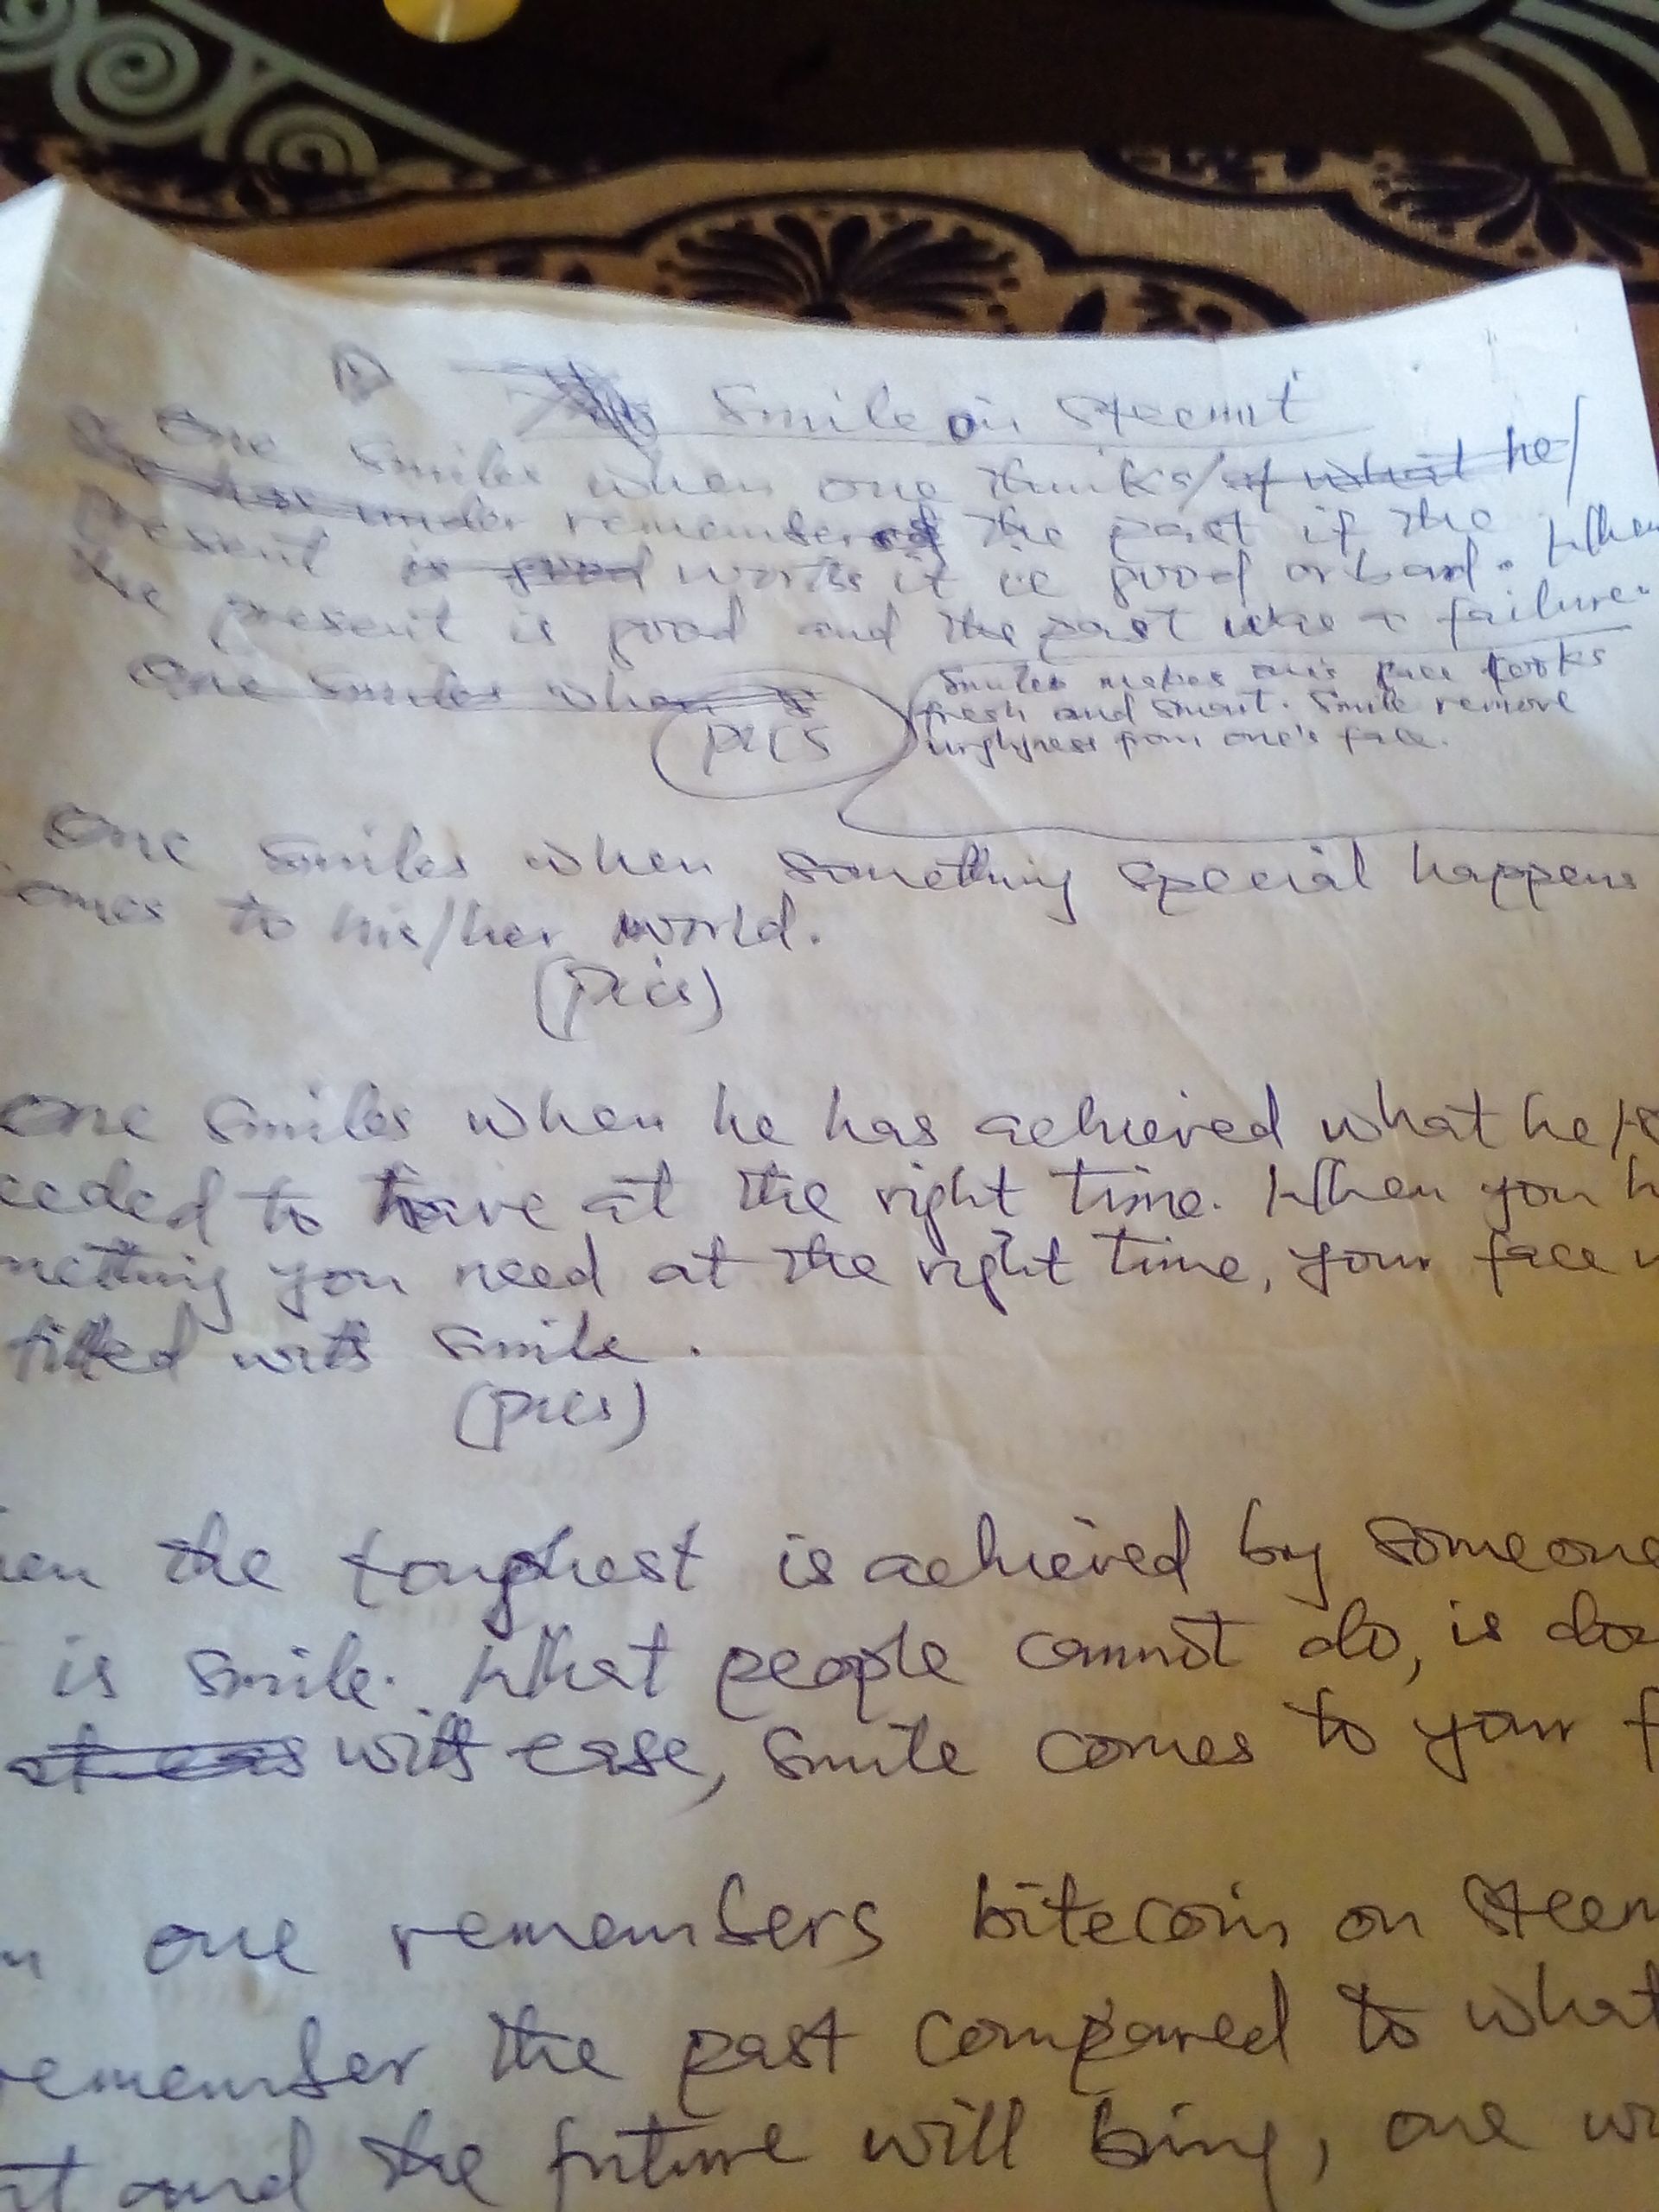 Smile on steemit
One smiles when one thinks/ of what he/
has under remembers the past if the
present is good worths it ie good or bad. When
the present is good and the past was a failure.
One smiles when
pics
Smiles makes one's face looks
fresh and smart. Smile remove
urghness from one's face.
One smiles when something special happens
omes to his/her world.
(pics)
One smiles when he has achieved what he/s
eeded to have at the right time. When you h
mething you need at the right time, your face w
filled with smile.
(pics)
en the toughest is achieved by someone
is smile. What people cannot do, is do
at eas with ease, smile comes to your f
n one remembers bitecoin on steem
remember the past compared to what
nt and the future will bring, one wi